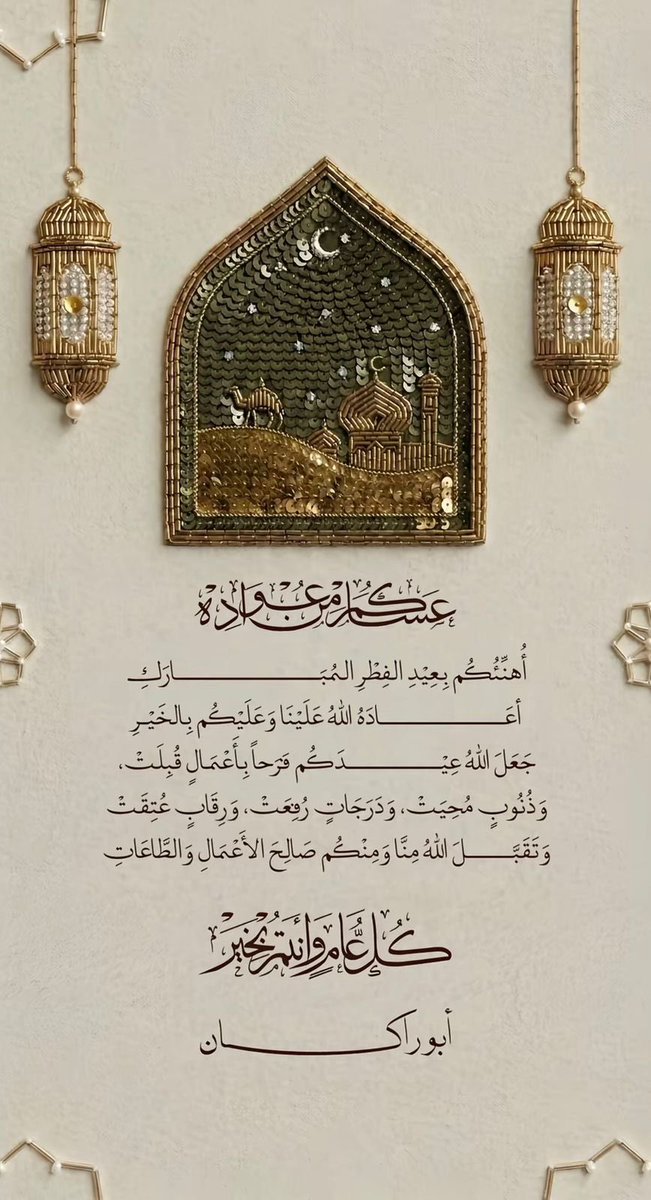 عساكم من عواده
أُهنِّئُكُم بِعِيْدِ الفِطْرِ المُبَـــارَكِ
أعَـــادَهُ اللهُ عَلَيْنَا وَعَلَيْكُم بِالخَيْـرِ
جَعَلَ اللهُ عِيْـــدَكُم فَرَحاً بِأَعْمَالٍ قُبِلَتْ،
وَذُنُوبٍ مُحِيَتْ، وَدَرَجَاتٍ رُفِعَتْ، وَرِقَابٍ عُتِقَتْ
وَتَقَبَّـــلَ اللهُ مِنَّا وَمِنْكُم صَالِحَ الأَعْمَالِ وَالطَّاعَاتِ
كُل عَامٍ وَأنتم بخَير
أبو راكـــان